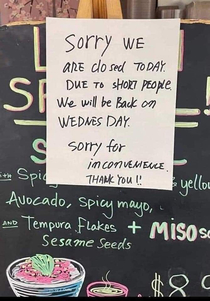 Sorry WE
ARE closed TODAY.
DUE TO SHORT PEOPLE.
We will be Back on
WEDNESDAY.
Sorry for
inconvenience.
THANK YOU!!
Avocado, Spicy mayo,
AND Tempura Flakes + MISO
Sesame Seeds